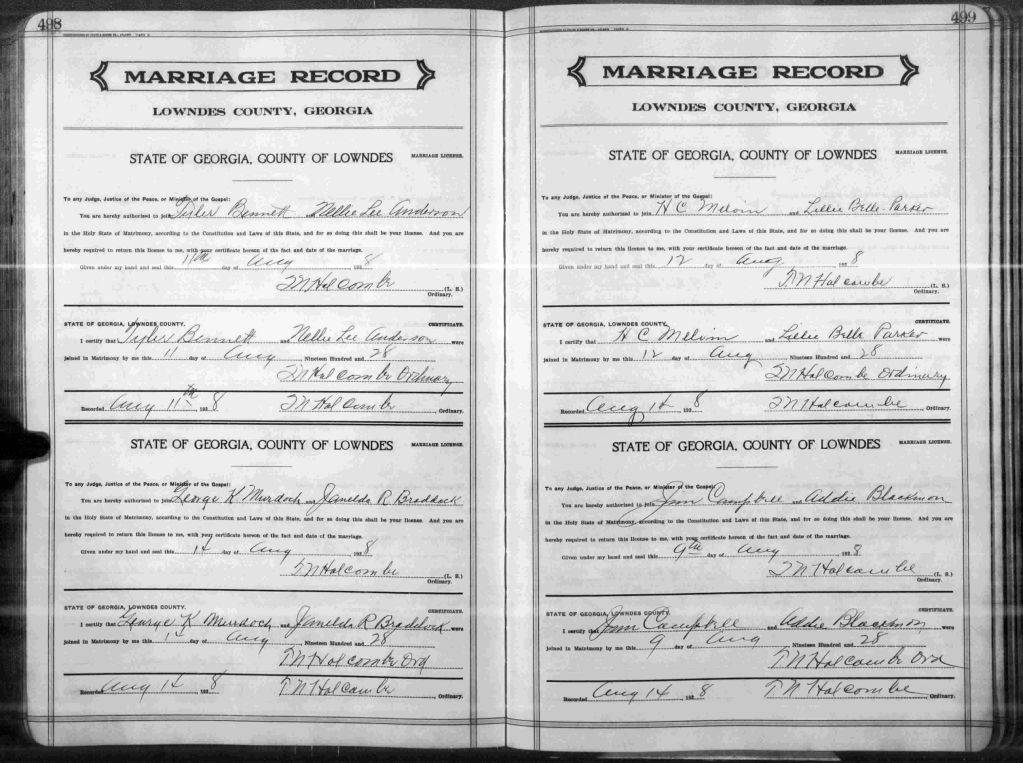 498
MARRIAGE RECORD
LOWNDES COUNTY, GEORGIA
STATE OF GEORGIA, COUNTY OF LOWNDES MARRIAGE LICENSE.
To any Judge, Justice of the Peace, or Minister of the Gospel:
You are hereby authorized to join Tyler Bennett Nellie Lee Anderson
in the Holy State of Matrimony, according to the Constitution and Laws of this State, and for so doing this shall be your license. And you are
hereby required to return this license to me, with your certificate hereon of the fact and date of the marriage.
Given under my hand and seal this 11th day of Aug 1928
T N Holcombe (L. S.)
Ordinary.
STATE OF GEORGIA, LOWNDES COUNTY. CERTIFICATE.
I certify that Tyler Bennett and Nellie Lee Anderson were
joined in Matrimony by me this 11 day of Aug Nineteen Hundred and 28
T N Holcombe Ordinary
Recorded Aug 11th 1928 T N Holcombe Ordinary.
STATE OF GEORGIA, COUNTY OF LOWNDES MARRIAGE LICENSE.
To any Judge, Justice of the Peace, or Minister of the Gospel:
You are hereby authorized to join George K Murdoch and Janelda R Braddock
in the Holy State of Matrimony, according to the Constitution and Laws of this State, and for so doing this shall be your license. And you are
hereby required to return this license to me, with your certificate hereon of the fact and date of the marriage.
Given under my hand and seal this 14 day of Aug 1928
T N Holcombe (L. S.)
Ordinary.
STATE OF GEORGIA, LOWNDES COUNTY. CERTIFICATE.
I certify that George K Murdoch and Janelda R Braddock were
joined in Matrimony by me this 14 day of Aug Nineteen Hundred and 28
T N Holcombe Ord
Recorded Aug 14 1928 T N Holcombe Ordinary.
499
MARRIAGE RECORD
LOWNDES COUNTY, GEORGIA
STATE OF GEORGIA, COUNTY OF LOWNDES MARRIAGE LICENSE.
To any Judge, Justice of the Peace, or Minister of the Gospel:
You are hereby authorized to join H C Melvin and Lillie Belle Parker
in the Holy State of Matrimony, according to the Constitution and Laws of this State, and for so doing this shall be your license. And you are
hereby required to return this license to me, with your certificate hereon of the fact and date of the marriage.
Given under my hand and seal this 12 day of Aug 1928
T N Holcombe (L. S.)
Ordinary.
STATE OF GEORGIA, LOWNDES COUNTY. CERTIFICATE.
I certify that H C Melvin and Lillie Belle Parker were
joined in Matrimony by me this 12 day of Aug Nineteen Hundred and 28
T N Holcombe Ordinary
Recorded Aug 14 1928 T N Holcombe Ordinary.
STATE OF GEORGIA, COUNTY OF LOWNDES MARRIAGE LICENSE.
To any Judge, Justice of the Peace, or Minister of the Gospel:
You are hereby authorized to join Jim Campbell and Addie Blackmon
in the Holy State of Matrimony, according to the Constitution and Laws of this State, and for so doing this shall be your license. And you are
hereby required to return this license to me, with your certificate hereon of the fact and date of the marriage.
Given under my hand and seal this 9th day of Aug 1928
T N Holcombe (L. S.)
Ordinary.
STATE OF GEORGIA, LOWNDES COUNTY. CERTIFICATE.
I certify that Jim Campbell and Addie Blackmon were
joined in Matrimony by me this 9 day of Aug Nineteen Hundred and 28
T N Holcombe Ord
Recorded Aug 14 1928 T N Holcombe Ordinary.